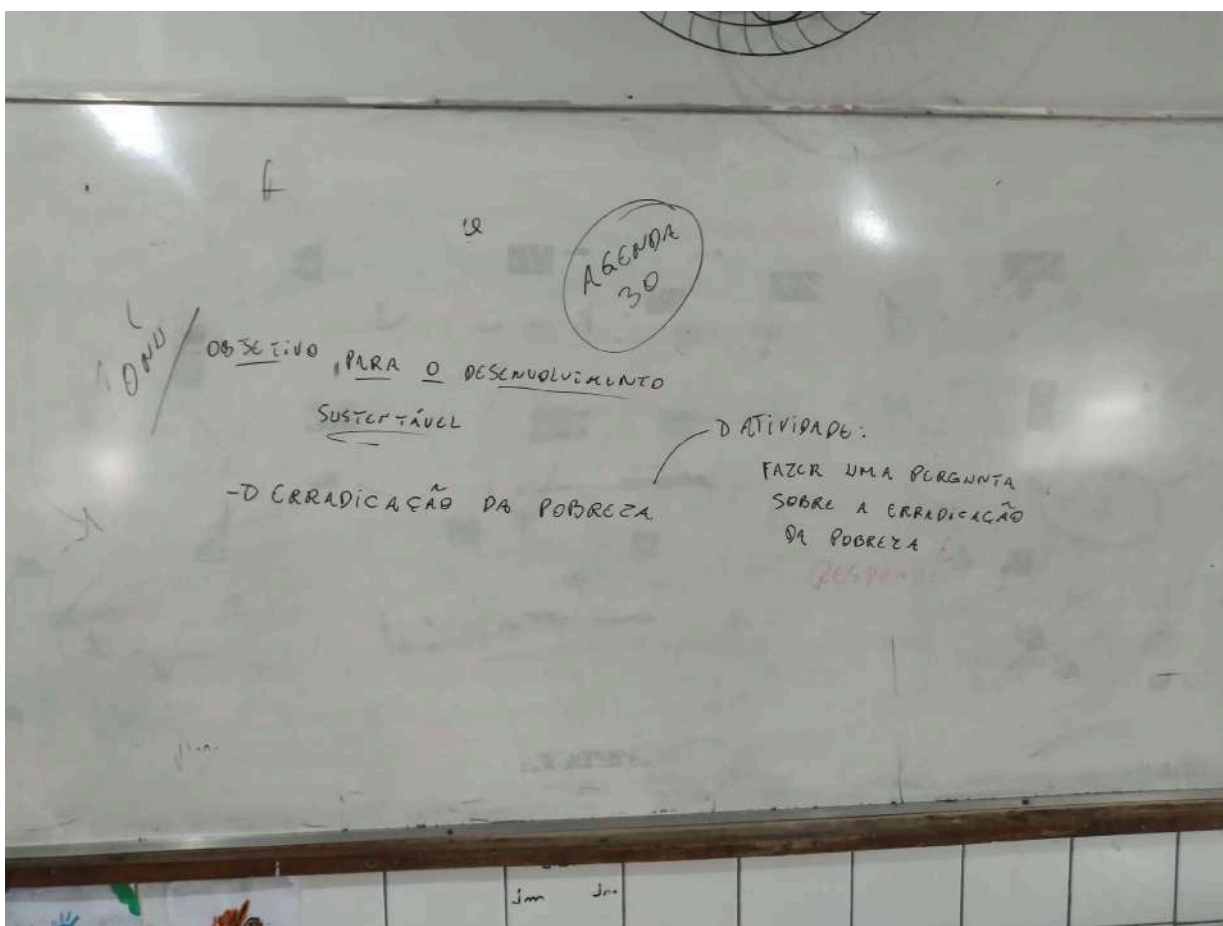 AGENDA
30
ONU
OBJETIVO PARA O DESENVOLVIMENTO
SUSTENTÁVEL
ERRADICAÇÃO DA POBREZA
ATIVIDADE:
FAZER UMA PERGUNTA
SOBRE A ERRADICAÇÃO
DA POBREZA
jm jm